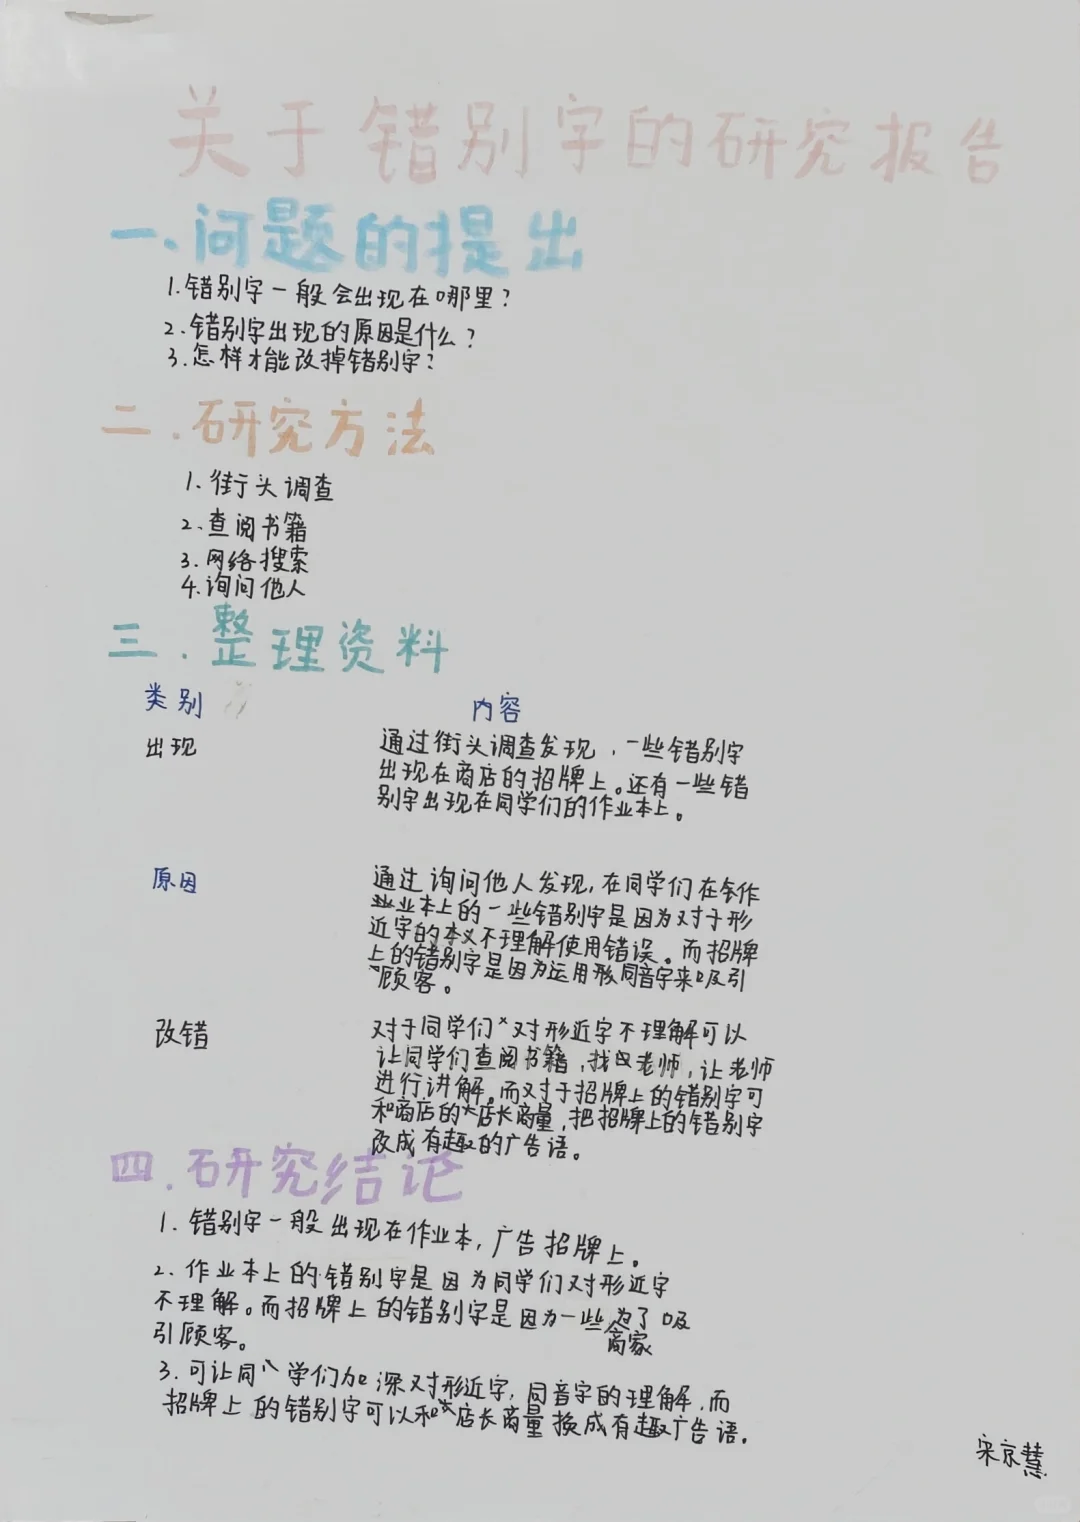 关于错别字的研究报告
一.问题的提出
1.错别字一般会出现在哪里?
2.错别字出现的原因是什么?
3.怎样才能改掉错别字?
二.研究方法
1.街头调查
2.查阅书籍
3.网络搜索
4.询问他人
三.整理资料
类别 内容
出现 通过街头调查发现,一些错别字
出现在商店的招牌上。还有一些错
别字出现在同学们的作业本上。
原因 通过询问他人发现,在同学们在作
业本上的一些错别字是因为对于形
近字的本义不理解使用错误。而招牌
上的错别字是因为运用形同音字来吸引
顾客。
改错 对于同学们对形近字不理解可以
让同学们查阅书籍,找老师,让老师
进行讲解。而对于招牌上的错别字可
和商店的店长商量,把招牌上的错别字
改成有趣的广告语。
四.研究结论
1.错别字一般出现在作业本,广告招牌上。
2.作业本上的错别字是因为同学们对形近字
不理解。而招牌上的错别字是因为一些商家为了吸
引顾客。
3.可让同学们加深对形近字,同音字的理解,而
招牌上的错别字可以和店长商量换成有趣广告语。
宋京慧